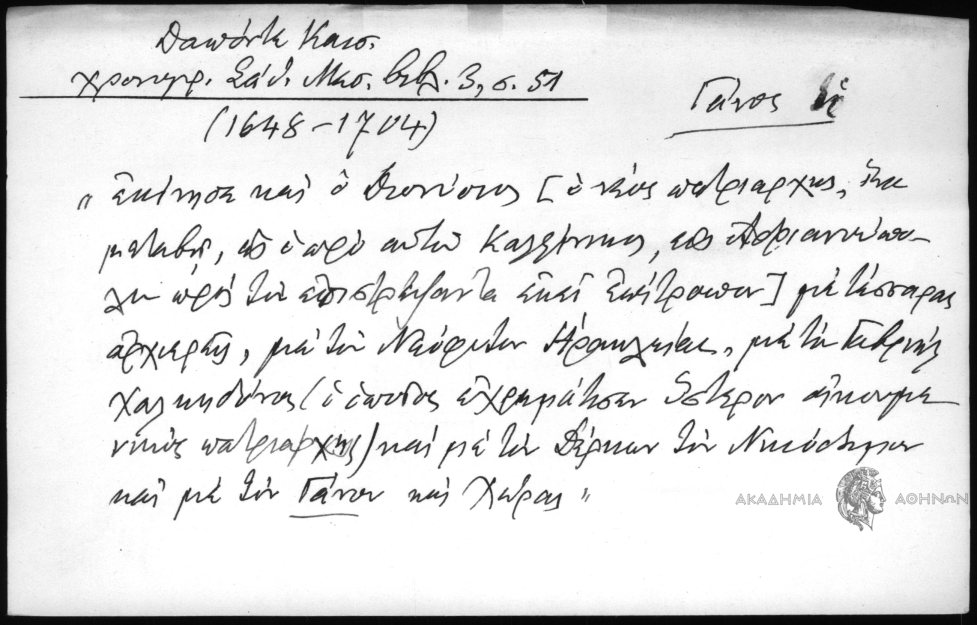 Δαπόντε Καισ.
χρονογρ. Σάθ. Μεσ. βιβλ. 3, σ. 51
Γάνος ἡ
(1648-1704)
"ἐκίνησε καὶ ὁ Διονύσιος [ὁ νέος πατριάρχης, ἵνα
μεταβῇ, ὡς ὁ πρὸ αὐτοῦ Καλλίνικος, εἰς Ἀδριανούπο-
λιν πρὸς τὸν ἐπιστρέψαντα ἐκεῖ Ἐπίτροπον] μὲ τέσσαρας
ἀρχιερεῖς, μὲ τὸν Νεόφυτον Ἡρακλείας, μὲ τὸν Γαβριήλ
Χαλκηδόνος (ὁ ὁποῖος ἐχρημάτισεν ὕστερον οἰκουμε
νικὸς πατριάρχης) καὶ μὲ τὸν Δέρκων τὸν Νικόδημον
καὶ μὲ τὸν Γάνου καὶ Χώρας"
ΑΚΑΔΗΜΙΑ ΑΘΗΝΩΝ